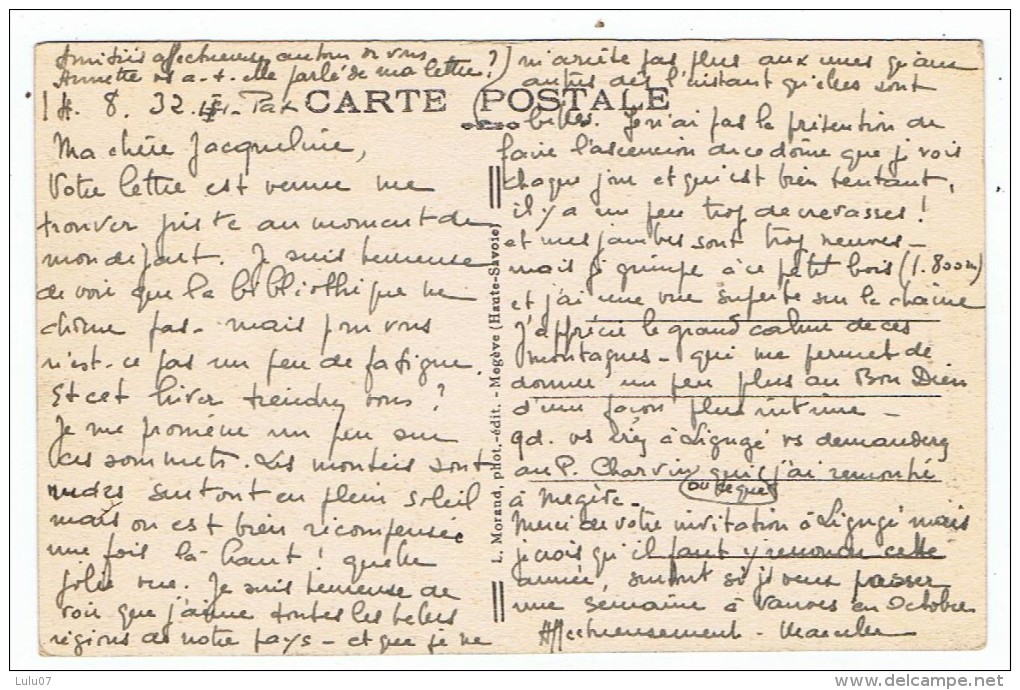 Amitiés affectueuses autour de vous.
Annette vs a-t-elle parlé de ma lettre ?
CARTE POSTALE
8. 32. Pax
Ma chère Jacqueline,
Votre lettre est venue me
trouver juste au moment de
mon départ. Je suis heureuse
de voir que la bibliothèque ne
chôme pas - mais pour vous
n'est-ce pas un peu de fatigue.
Et cet hiver tiendrez vous ?
Je me promène un peu sur
ces sommets. Les montées sont
rudes surtout en plein soleil
mais on est bien récompensée
une fois là-haut ! quelle
jolie vue. Je suis heureuse de
voir que j'aime toutes les belles
régions de notre pays - et que je ne
L. Morand, phot.-édit. - Megève (Haute-Savoie)
m'arrête pas plus aux unes qu'aux
autres dès l'instant qu'elles sont
belles. Je n'ai pas la prétention de
faire l'ascension de ce dôme que je vois
chaque jour et qui est bien tentant,
il y a un peu trop de crevasses !
et mes jambes sont trop neuves -
mais je grimpe à ce petit bois (1.800m)
et j'ai une vue superbe sur la chaîne
J'apprécie le grand calme de ces
montagnes - qui me permet de
donner un peu plus au Bon Dieu
d'une façon plus intime -
qd. vs irez à Ligugé vs demanderez
au P. Charvin qui j'ai remonté
à Megève.
Merci de votre invitation à Ligugé mais
je crois qu'il faut y renoncer cette
année, surtout si je veux passer
une semaine à Vanves en Octobre
Affectueusement -
Lulu07
delcampe.net